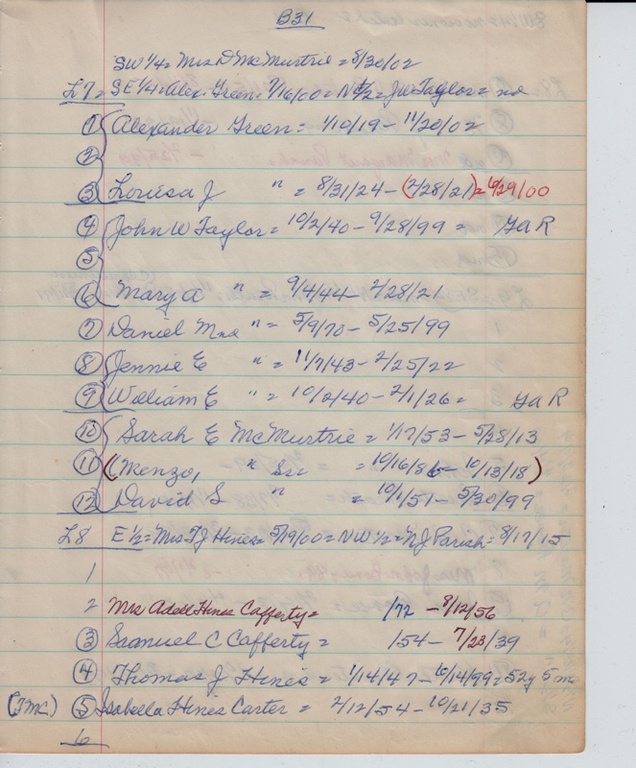 B31
SW 1/4 = Mrs D McMurtrie = 8/30/02
L7 = SE 1/4 = Alex. Green = 9/16/00 = N 1/2 = JW Taylor = nd
① Alexander Green = 1/10/19 - 11/20/02
②
③ Louiesa J " = 8/31/24 - (2/28/21) = 6/29/00
④ John W Taylor = 10/2/40 - 9/28/99 = GaR
⑤
⑥ Mary A " = 9/4/44 - 2/28/21
⑦ Daniel " = 5/9/70 - 5/25/99
⑧ Jennie E " = 11/7/43 - 2/25/22
⑨ William E " = 10/2/40 - 2/1/26 = GaR
⑩ Sarah E McMurtrie = 1/17/53 - 5/28/13
⑪ (Kenzo, " = 10/16/86 - 10/13/18)
⑫ David S " = 10/1/51 - 5/30/99
L8 E 1/2 = Mrs TJ Hines = 5/19/00 = NW 1/2 = NJ Parish = 8/17/15
1
2 Mrs Adell Hines Cafferty = /72 - 8/12/56
③ Samuel C Cafferty = /54 - 7/23/39
④ Thomas J Hines = 1/14/47 - 6/14/99 = 52y 5 mo
(TMC) ⑤ Isabella Hines Carter = 2/12/54 - 10/21/35
6